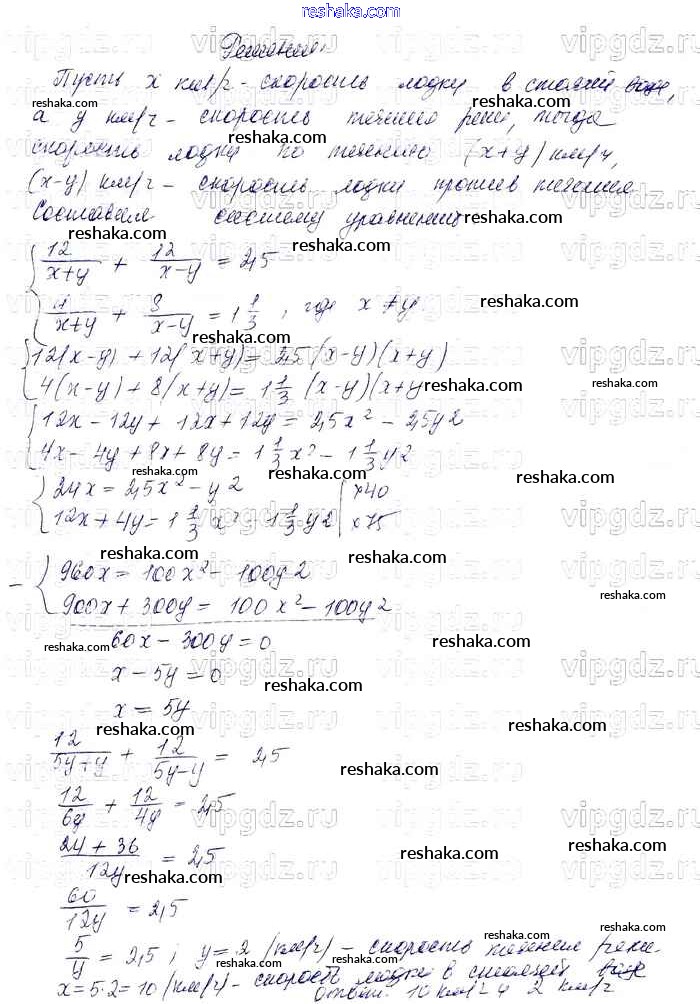 reshaka.com
Решение.
Пусть х км/ч - скорость лодки в стоячей воде,
а у км/ч - скорость течения реки, тогда
скорость лодки по течению (х+у) км/ч,
(х-у) км/ч - скорость лодки против течения
Составим систему уравнений
12/(x+y) + 12/(x-y) = 2,5
4/(x+y) + 8/(x-y) = 1 1/3, где x ≠ y.
12(x-y) + 12(x+y) = 2,5(x-y)(x+y)
4(x-y) + 8(x+y) = 1 1/3 (x-y)(x+y
12x - 12y + 12x + 12y = 2,5x² - 2,5y2
4x - 4y + 8x + 8y = 1 1/3 x² - 1 1/3 y2
24x = 2,5x² - y2 | x40
12x + 4y = 1 1/3 x² - 1 1/3 y2 | x75
- 960x = 100x² - 100y2
900x + 300y = 100x² - 100y2
60x - 300y = 0
x - 5y = 0
x = 5y
12/(5y+y) + 12/(5y-y) = 2,5
12/6y + 12/4y = 2,5
(24 + 36)/12y = 2,5
60/12y = 2,5
5/y = 2,5; y = 2 (км/ч) - скорость течения реки.
x = 5·2 = 10 (км/ч) - скорость лодки в стоячей воде
Ответ: 10 км/ч и 2 км/ч